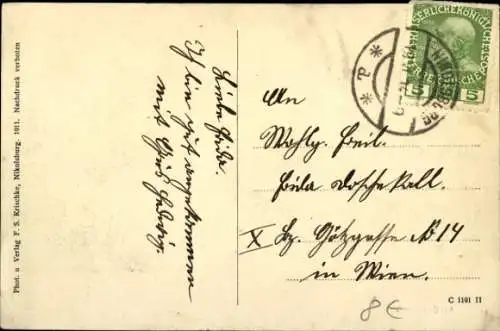 Phot. u Verlag F. S. Krischke, Nikolsburg. 1911. Nachdruck verboten
Liebe
Ich bin gut angekommen
mit Gruß Hedwig.
KAISERLICHE KÖNIGLICHE
5 5
NIKOLSBURG
* a *
An
Wohlg. Freil.
X Bz. Götzgasse № 14
in Wien.
C 1101 II
8€